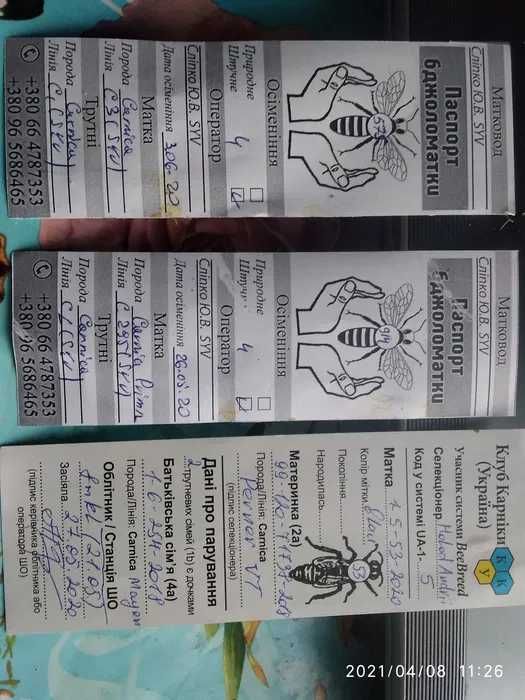 Матковод
Сліпко Ю.В. SYV
Паспорт
бджоломатки
578
Осіменіння
Природне
Штучне 4
Оператор
Сліпко Ю.В. SYV
Дата осіменіння 3.06 20
Матка
Порода Carnica
Лінія C 3 (SYV)
Трутні
Порода Carnica
Лінія C 1 (SYV)
+380 66 4787353
+380 96 5686465
Матковод
Сліпко Ю.В. SYV
Паспорт
бджоломатки
9/4
Осіменіння
Природне
Штучне 4
Оператор
Сліпко Ю.В. SYV
Дата осіменіння 26.05 20
Матка
Порода Carnica
Лінія (SYV)
Трутні
Порода Carnica
Лінія (SYV)
+380 66 4787353
+380 96 5686465
Клуб Карніки
(Україна)
К К У
Учасник системи BeeBreed
Селекціонер
Код у системі UA-1- 5
Матка 1-5-53-2020
Колір мітки
Покоління
Народилась
53
Материнка (2a)
(підпис селекціонера)
Порода/Лінія: Carnica
VT
Дані про парування
2 трутневих сімей (1b) є дочками
Батьківська сім'я (4a)
1-6-254-2018
Порода/Лінія: Carnica Mayer
Облітник / Станція ШО
Засіяла 27.05.2020
(підпис керівника облітника або
оператора ШО)
2021/04/08 11:26